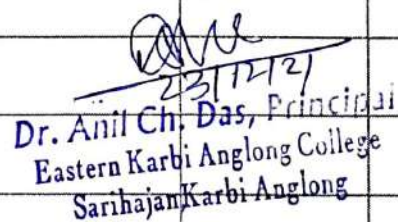 23/12/21
Dr. Anil Ch. Das, Principal
Eastern Karbi Anglong College
Sarihajan Karbi Anglong